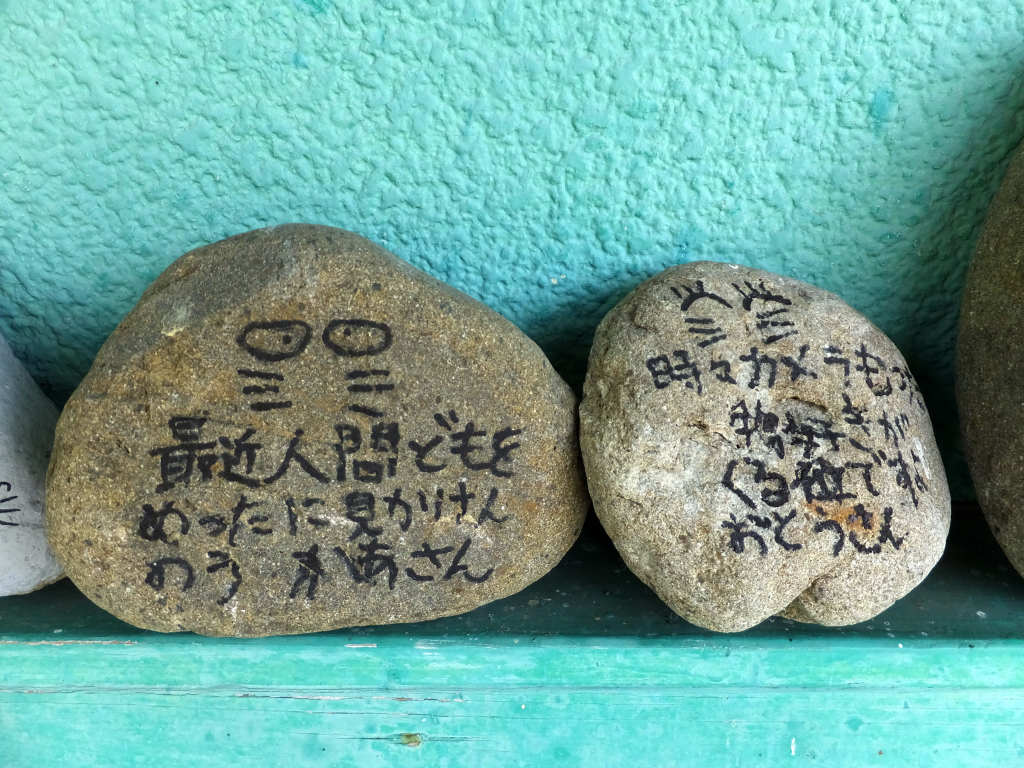 最近人間どもを
めったに見かけさん
のう かあさん
時々カメラもった
物好きが
くる位ですね
おとうさん